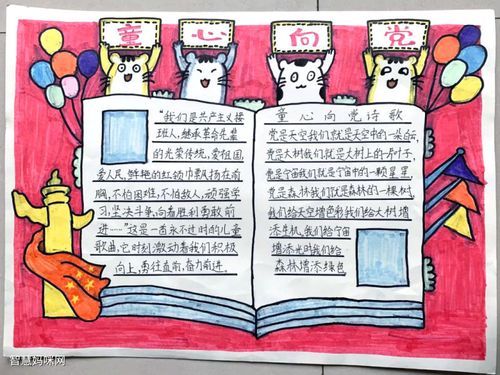 童心向党
"我们是共产主义接
班人,继承革命先辈
的光荣传统,爱祖国,
爱人民,鲜艳的红领巾飘扬在前
胸,不怕困难,不怕敌人,顽强学
习,坚决斗争,向着胜利勇敢前
进……"这是一首永不过时的儿童
歌曲,它时刻激动着我们积极
向上,勇往直前,奋力前进。
童心向党诗歌
党是天空我们就是天空中的一朵白云,
党是大树我们就是大树上的一片叶子,
党是宇宙我们就是宇宙中的一颗星星
党是森林我们就是森林的一棵树,
我们给天空增色彩我们给大树增
添生机,我们给宇宙
增添光时我们给
森林增添绿色
智慧妈咪网